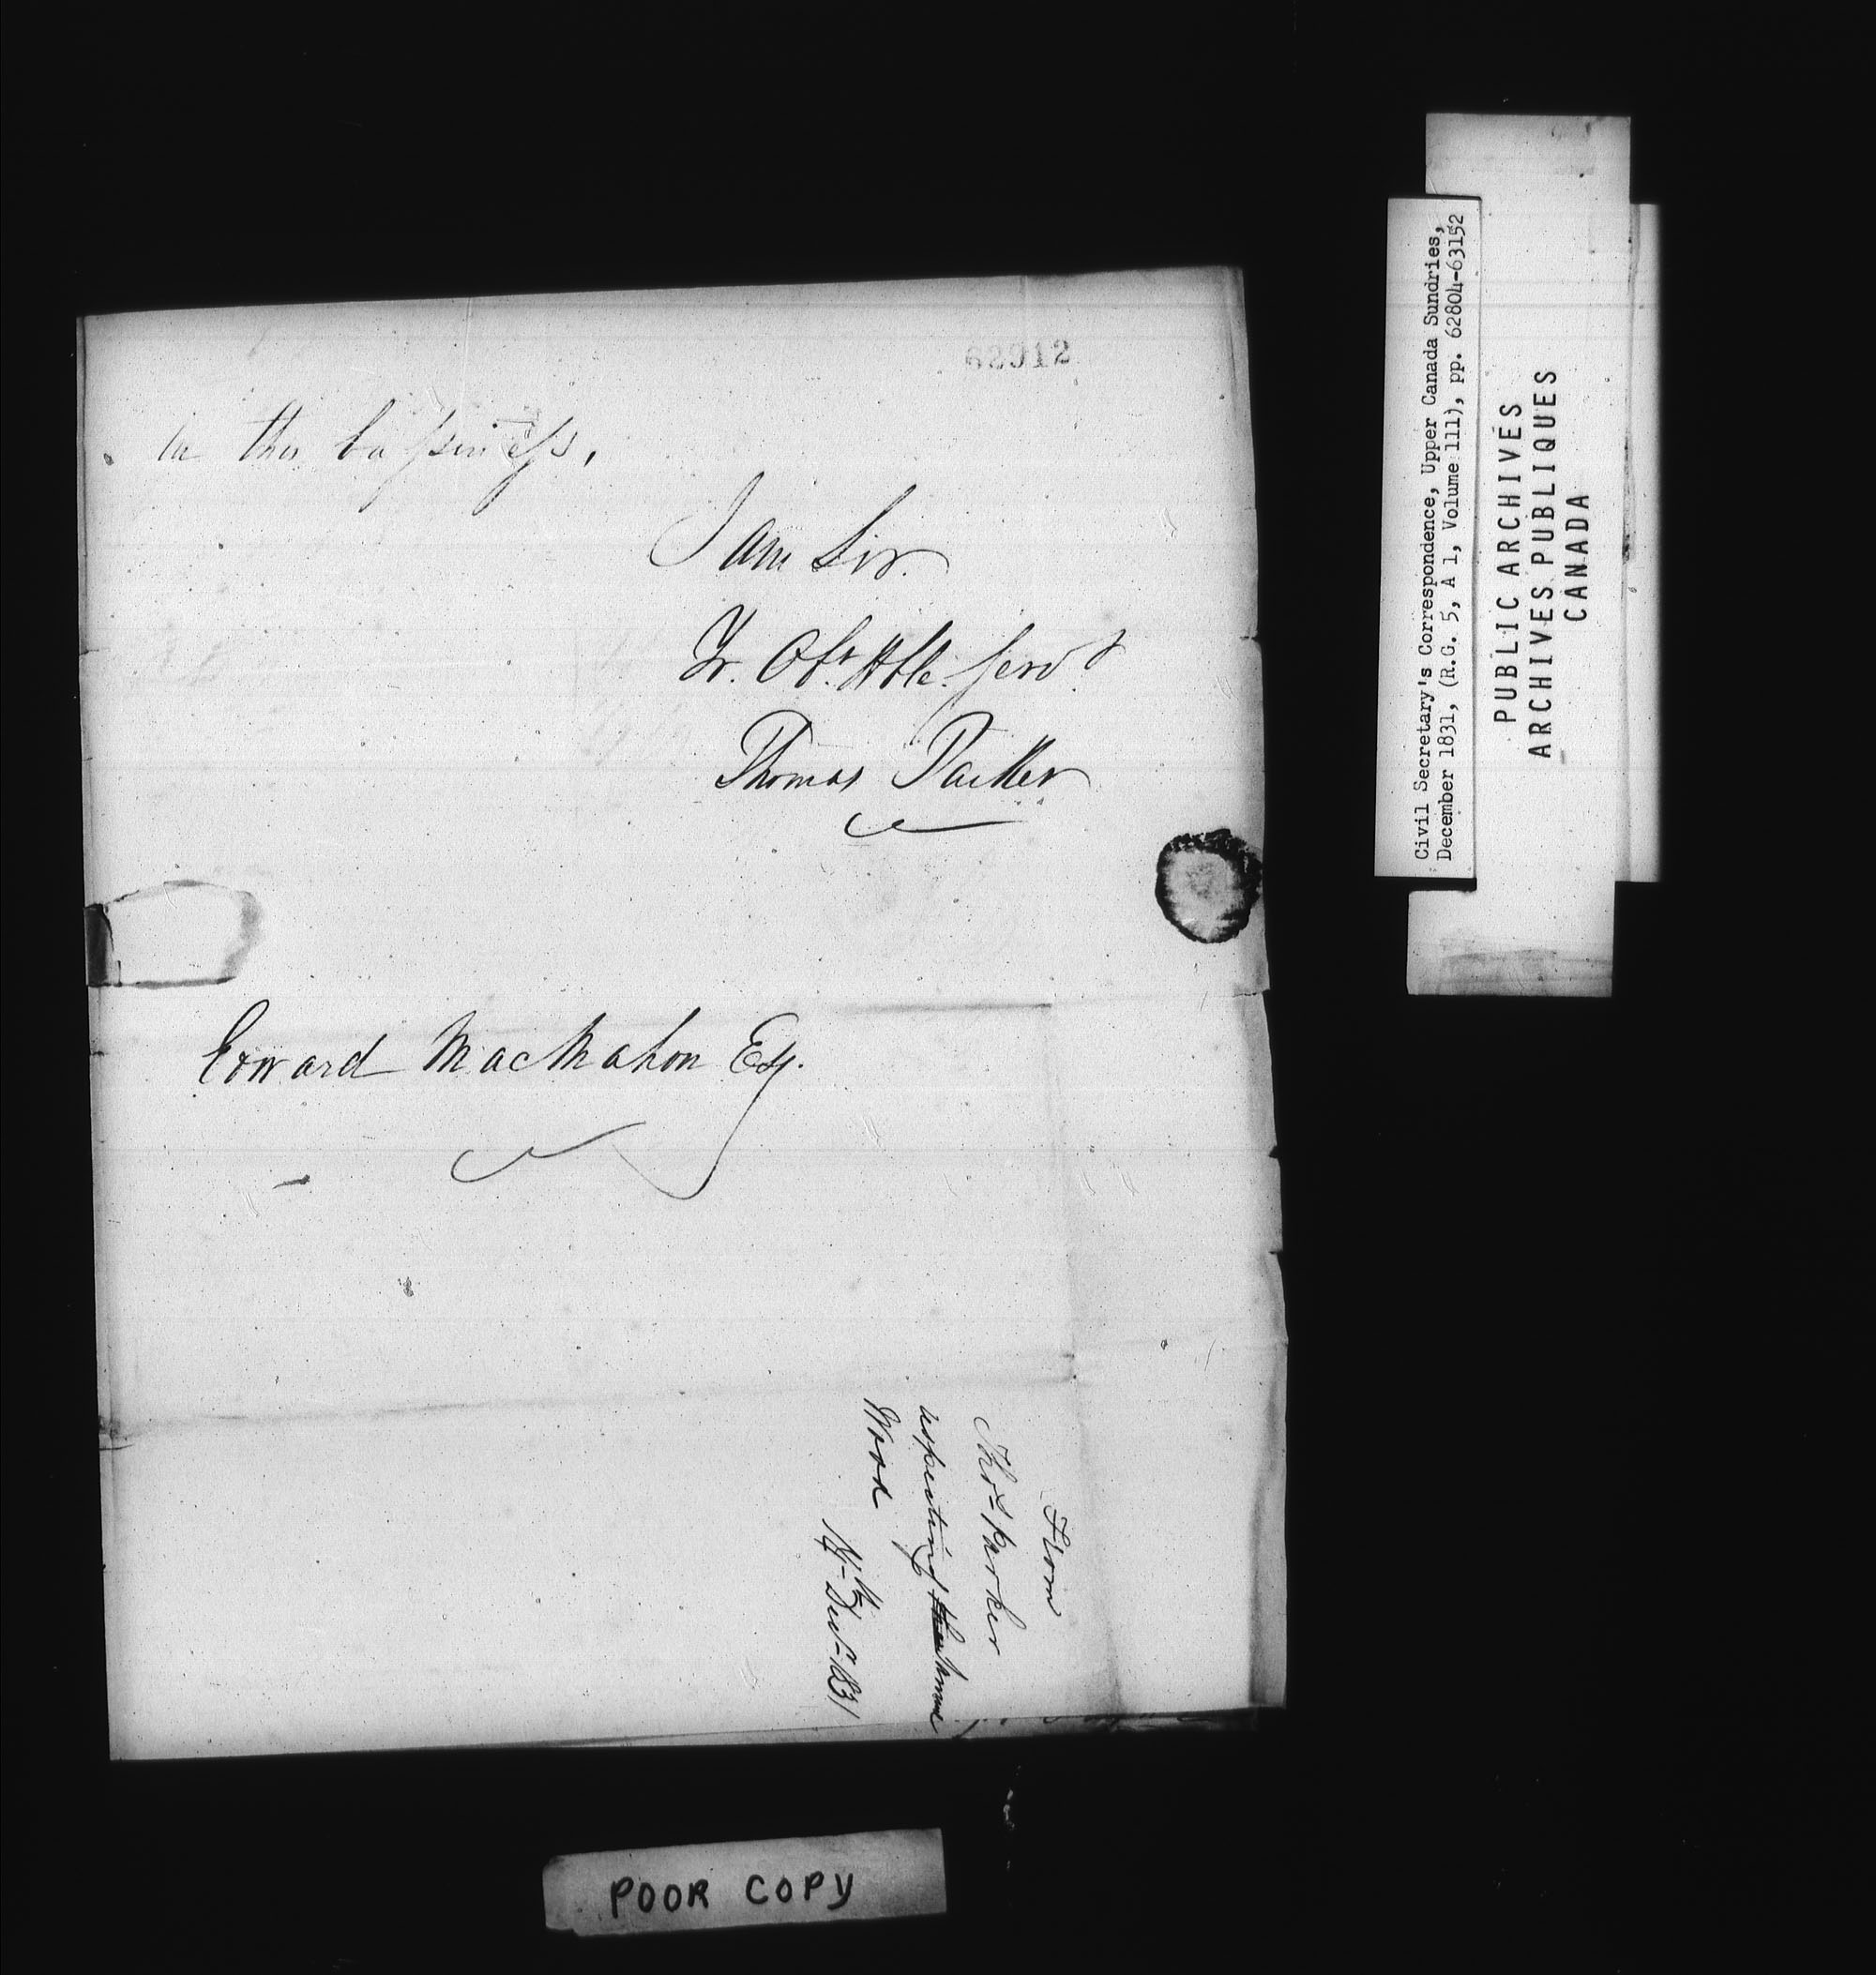 62912
in this bussiness,
I am Sir.
Yr. Obt. Hble. Servt.
Thomas Parker
Edward MacMahon Esq.
From
Thos Parker
respecting
Wood
14th Decr 1831
Civil Secretary's Correspondence, Upper Canada Sundries,
December 1831, (R.G. 5, A 1, Volume 111), pp. 62804-63152
PUBLIC ARCHIVES
ARCHIVES PUBLIQUES
CANADA
POOR COPY